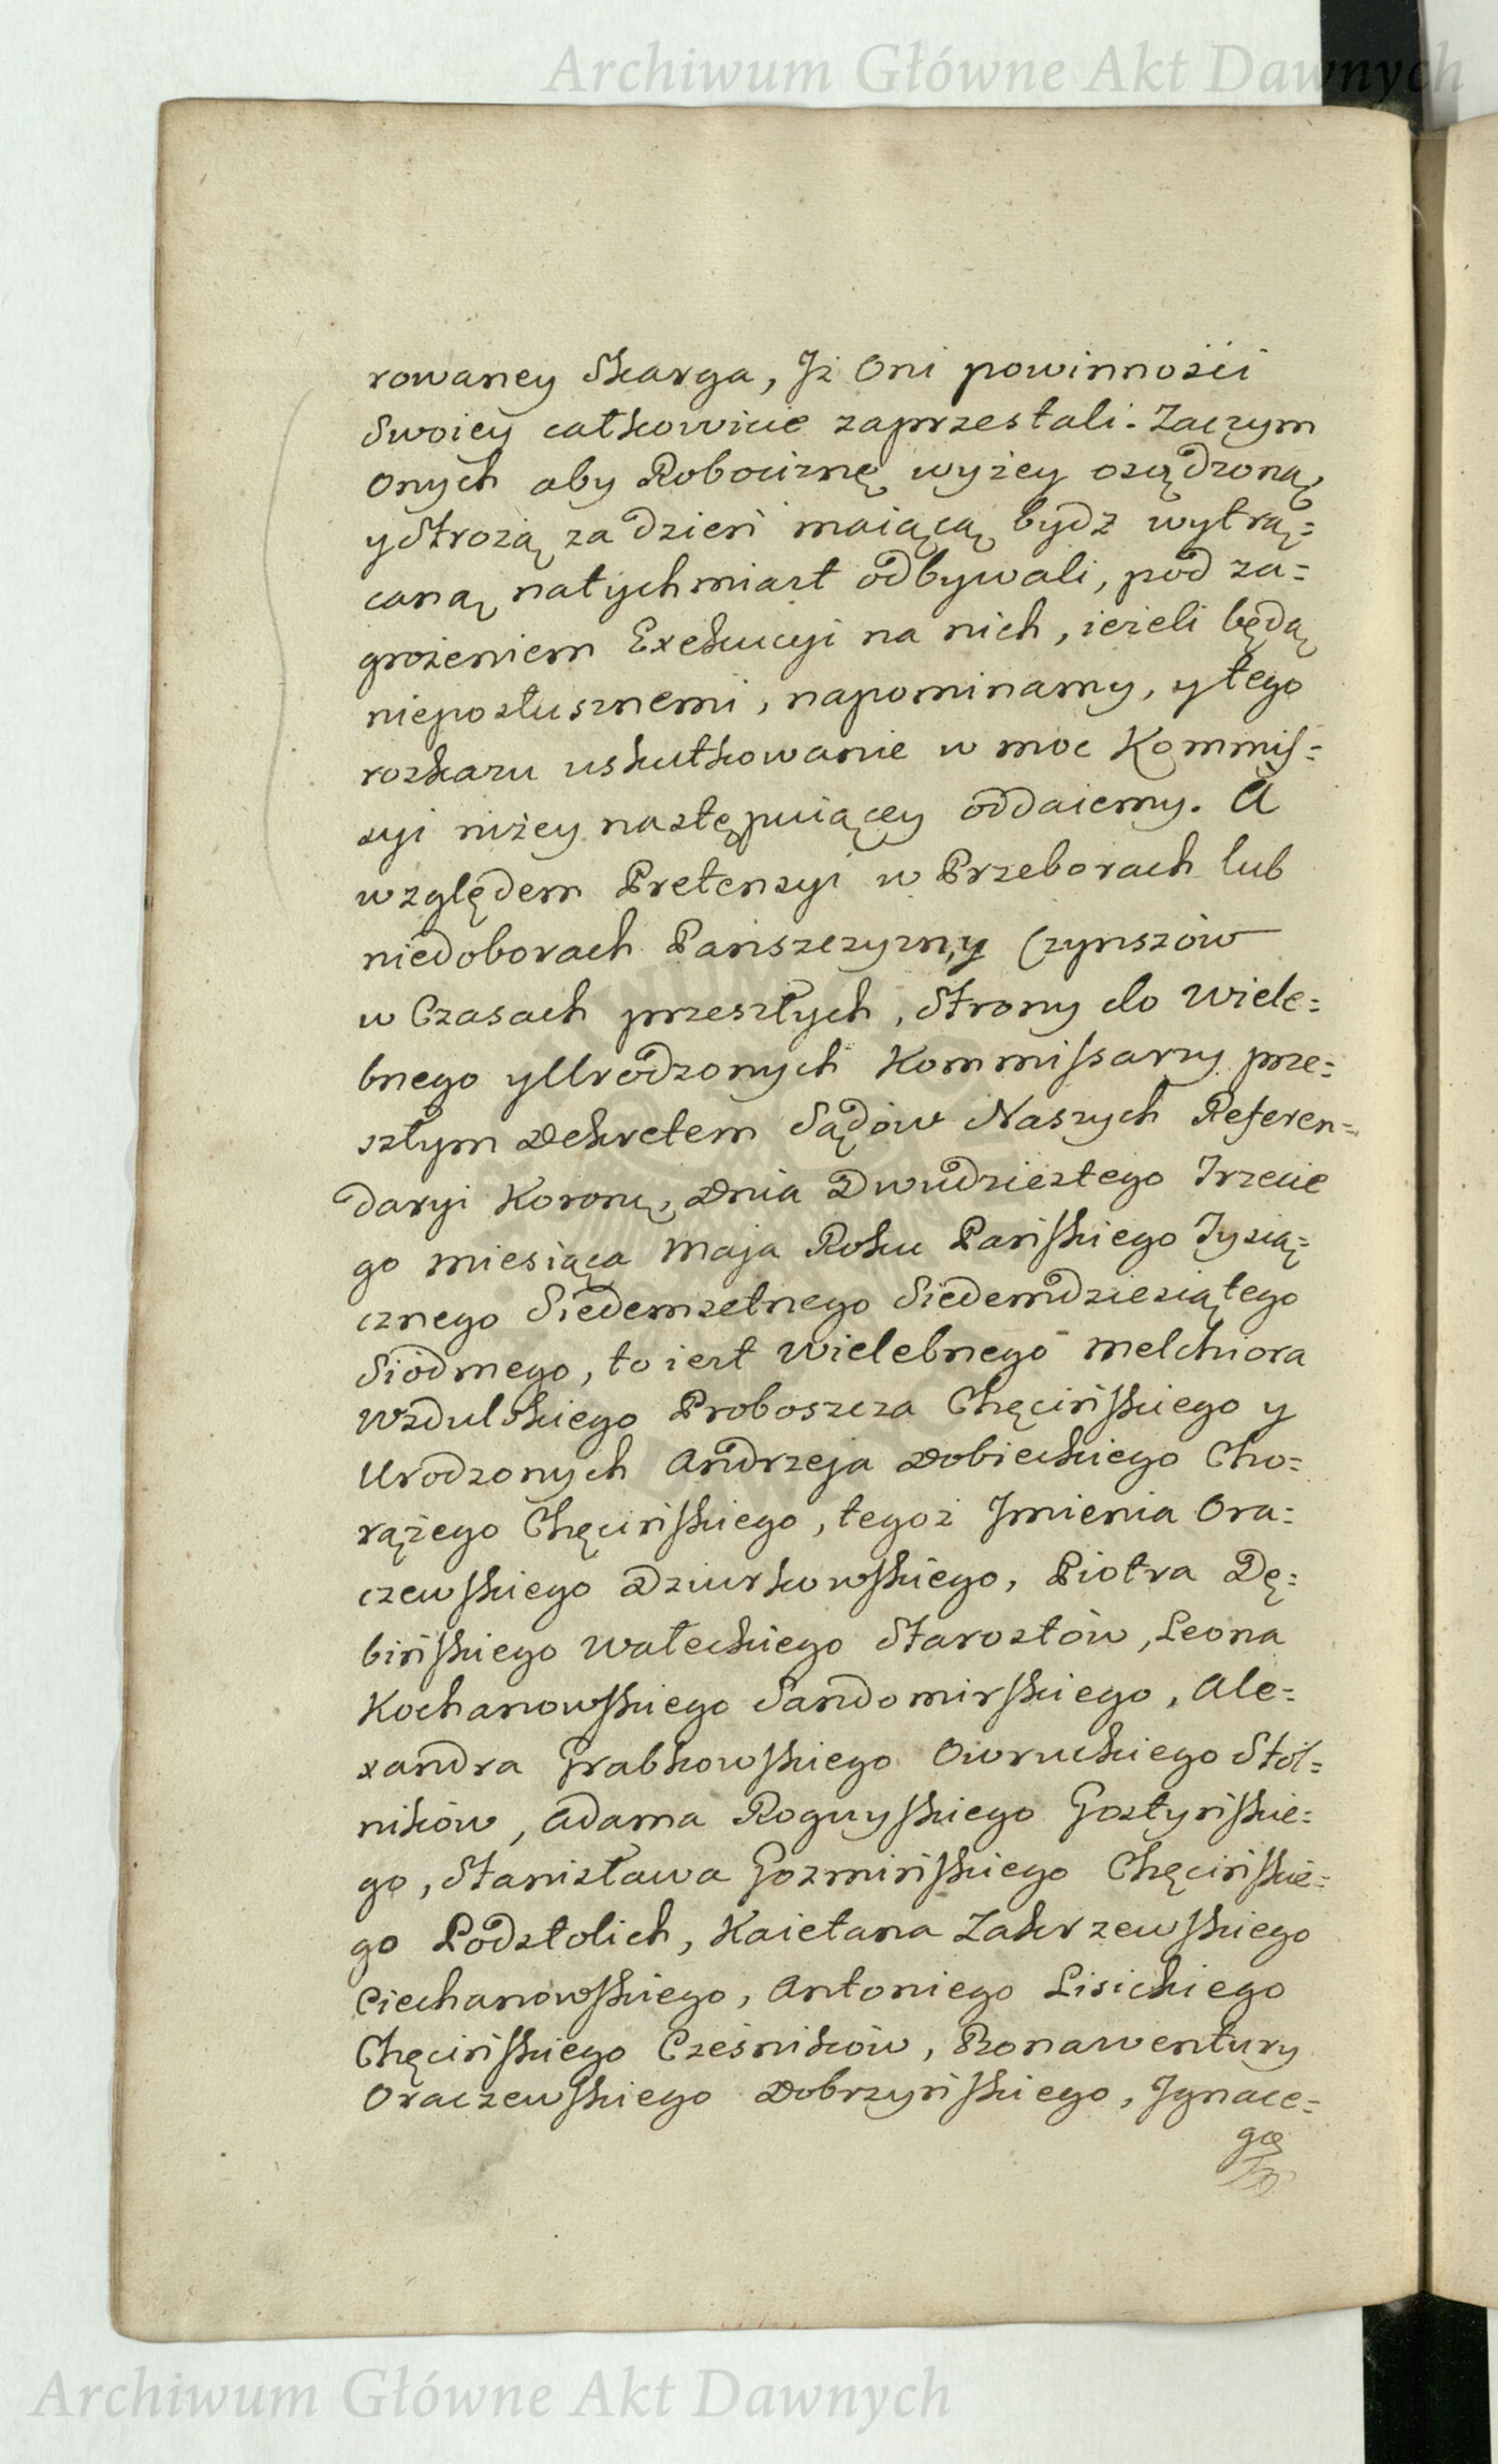 Archiwum Główne Akt Dawnych
rowaney Skarga, Jż Oni powinności
Swoiey całkowicie zaprzestali. Zaczym
Onych aby Robociznę wyżey osądzoną,
y Strożą za dzień maiącą bydz wytrą=
caną natychmiast odbywali, pod za=
grożeniem Exekucyi na nich, ieżeli będą
nieposłusznemi, napominamy, y tego
rozkazu uskutkowanie w moc Kommis=
syi niżey następuiącey oddaiemy. A
względem Pretensyi w Przeborach lub
niedoborach Pańszczyzny, y Czynszów
w Czasach przeszłych, Strony do Wiele=
bnego y Urodzonych Kommissarzy prze=
szłym Dekretem Sądów Naszych Referen=
daryi Koronę, Dnia Dwudziestego Trzecie
go miesiąca Maja Roku Pańskiego Tysią=
cznego Siedemsetnego Siedemdziesiątego
Siódmego, to iest Wielebnego Melchiora
Wzdulskiego Proboszcza Chęcińskiego y
Urodzonych Andrzeja Dobieckiego Cho=
rążego Chęcińskiego, tegoż Jmienia Ora=
czewskiego Dziurkowskiego, Piotra Dę=
bińskiego Wałeckiego Starostów, Leona
Kochanowskiego Sandomirskiego, Ale=
xandra Grabkowskiego Owruckiego Stol=
ników, Adama Roguyskiego Gostyńskie=
go, Stanisława Gozmińskiego Chęcińskie=
go Podstolich, Kaietana Zakrzewskiego
Ciechanowskiego, Antoniego Lisickiego
Chęcińskiego Cześników, Bonawentury
Oraczewskiego Dobrzyńskiego, Jgnace=
go
Archiwum Główne Akt Dawnych